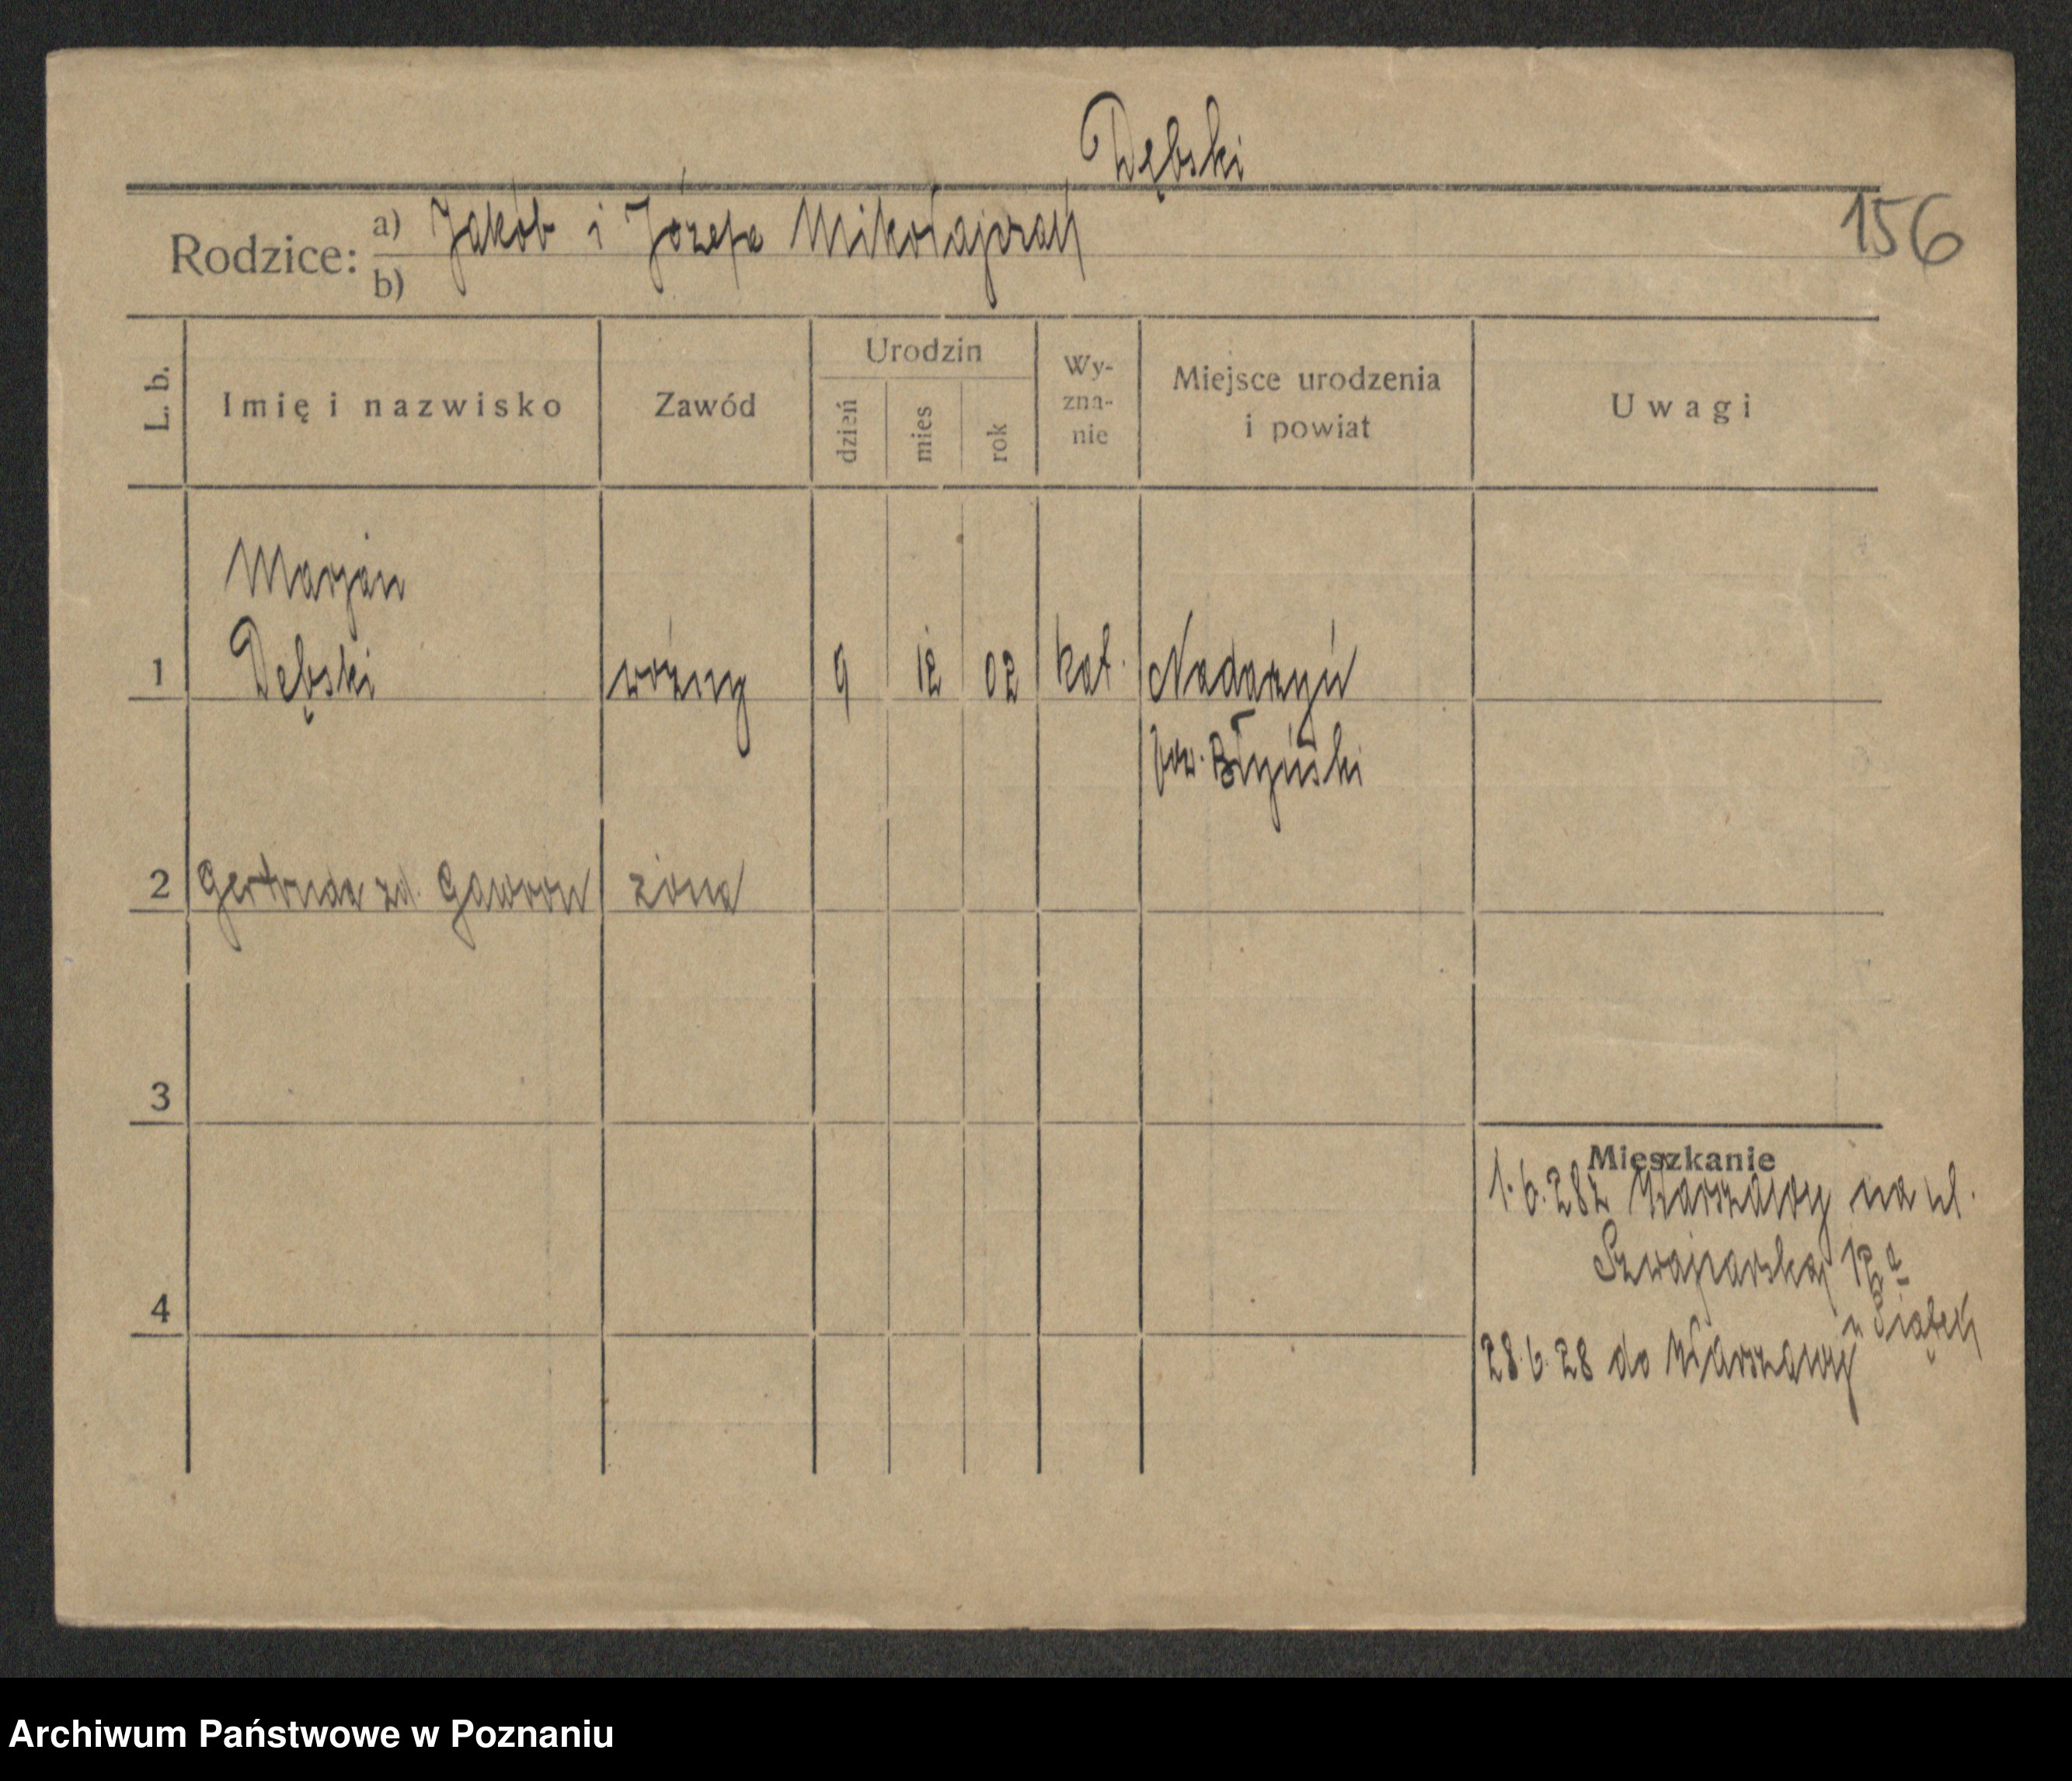 Dębski
Rodzice: a) Jakób i Józefa Mikołajczak
b)
156
L. b.
Imię i nazwisko
Zawód
Urodzin
dzień
mies
rok
Wy-
zna-
nie
Miejsce urodzenia
i powiat
Uwagi
Marjan
1 Dębski woźny 9 12 02 kat. Nadarzyn
pow. Błoński
2 Gertruda zd. Gawron żona
3
Mieszkanie
1.6.28 z Warszawy na ul.
Szwajcarską
u Piątek
4
28.6.28 do Warszawy
Archiwum Państwowe w Poznaniu